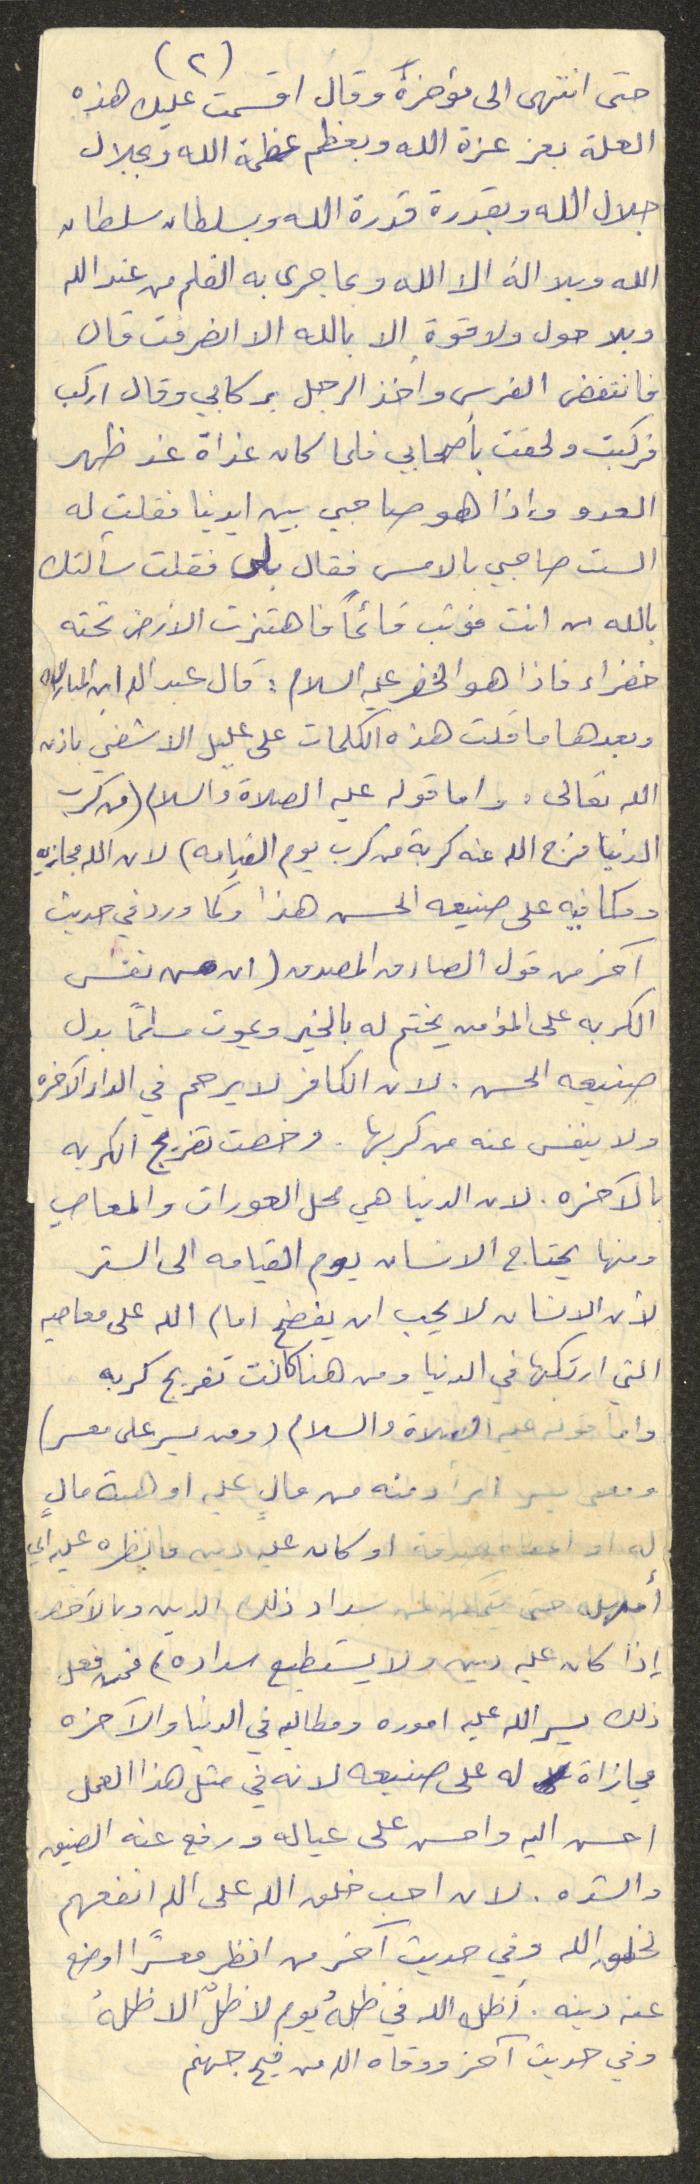 (٢)
حتى انتهى الى مؤخرة وقال اقسمت عليك هذه
العلة بعز عزة الله وبعظم عظمة الله وبجلال
جلال الله وبقدرة قدرة الله وبسلطان سلطان
الله وبلا اله الا الله وبما جرى به القلم من عند الله
وبلا حول ولا قوة إلا بالله الا انصرفت قال
فانتفض الفرس وأخذ الرجل بركابي وقال اركب
فركبت ولحقت بأصحابي فلما كان غداة غد ظهر
العدو واذا هو صاحبي بين ايدينا فقلت له
الست صاحبي بالامس فقال بلى فقلت سألتك
بالله من انت فوثب قائماً فاهتزت الأرض تحته
خضراء فاذا هو الخضر عليه السلام : قال عبد الله ابن المبارك
وبعدها ما قلت هذه الكلمات على عليل الا شفي باذن
الله تعالى . واما قوله عليه الصلاة والسلام (من كرب
الدنيا فرج الله عنه كربة من كرب يوم القيامه) لان الله مجازيه
ومكافيه على صنيعه الحسن هذا وكما ورد في حديث
آخر من قول الصادق المصدق (ان من نفس
الكربه على المؤمن يختم له بالخير ويموت مسلماً بدل
صنيعه الحسن . لان الكافر لا يرحم في الدار الآخره
ولا ينفس عنه من كربها . وخصت تفريج الكربه
بالآخره . لان الدنيا هي محل العورات والمعاصي
ومنها يحتاج الانسان يوم القيامه الى الستر
لأن الانسان لا يحب ان يفضح امام الله على معاصيه
التي ارتكبها في الدنيا ومن هنا كانت تفريج كربه
واما قوله عليه الصلاة والسلام (ومن يسر على معسر)
ومعنى يسر ابرأ ذمته من مالٍ عليه او هبة مالٍ
له او اعطاه صدقة او كان عليه دين فانظره عليه اي
أمهله حتى يتمكن من سداد ذلك الدين وبالاخص
إذا كان عليه دين ولا يستطيع سداده) فمن فعل
ذلك يسر الله عليه اموره ومطالبه في الدنيا والآخره
مجازاة له على صنيعه لانه في مثل هذا العمل
احسن اليه واحسن على عياله ورفع عنه الضيق
والشده . لان احب خلق الله على الله انفعهم
لخلق الله وفي حديث آخر من انظر معسرًا اوضع
عنه دينه . أظل الله في ظلهُ يوم لا ظلّ الا ظلهُ
وفي حديث آخر ووقاه الله من فيح جهنم